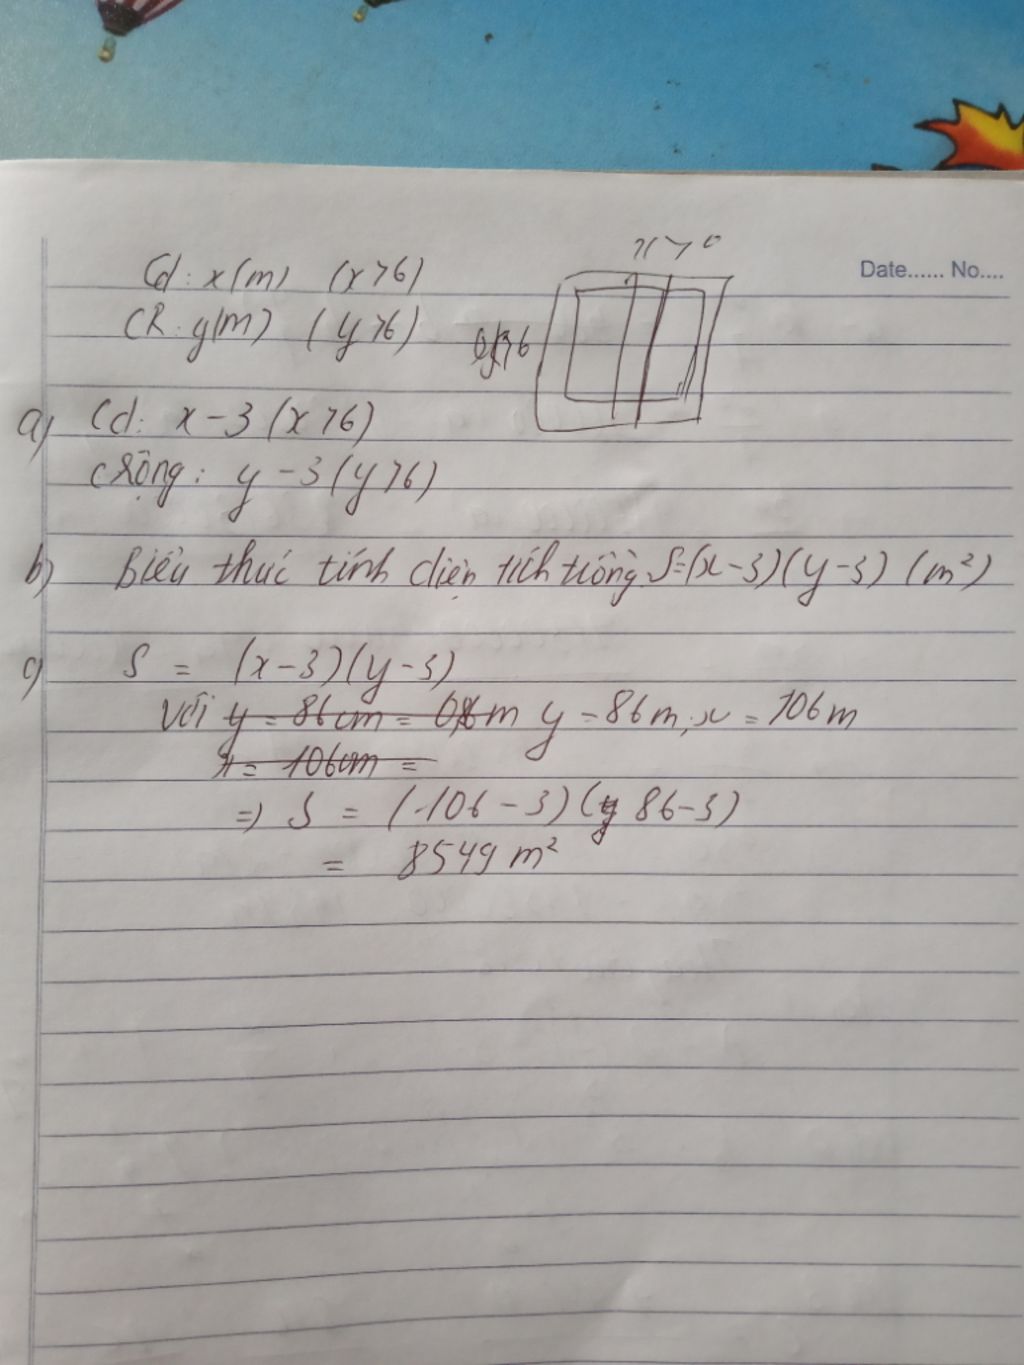 Cd: x(m) (x>6)
CR: y(m) (y>6)
x > 0
Date...... No....
a) Cd: x-3 (x>6)
C Rộng: y-3 (y>6)
b) Biểu thức tính diện tích trồng S=(x-3)(y-3) (m²)
c) S = (x-3)(y-3)
Với y = 86cm = m y = 86m; x = 106m
x = 106cm =
=> S = (106-3)(86-3)
= 8549 m²